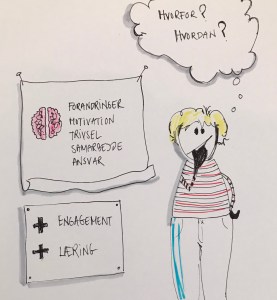 HVORFOR?
HVORDAN?
FORANDRINGER
MOTIVATION
TRIVSEL
SAMARBEJDE
ANSVAR
+ ENGAGEMENT
+ LÆRING